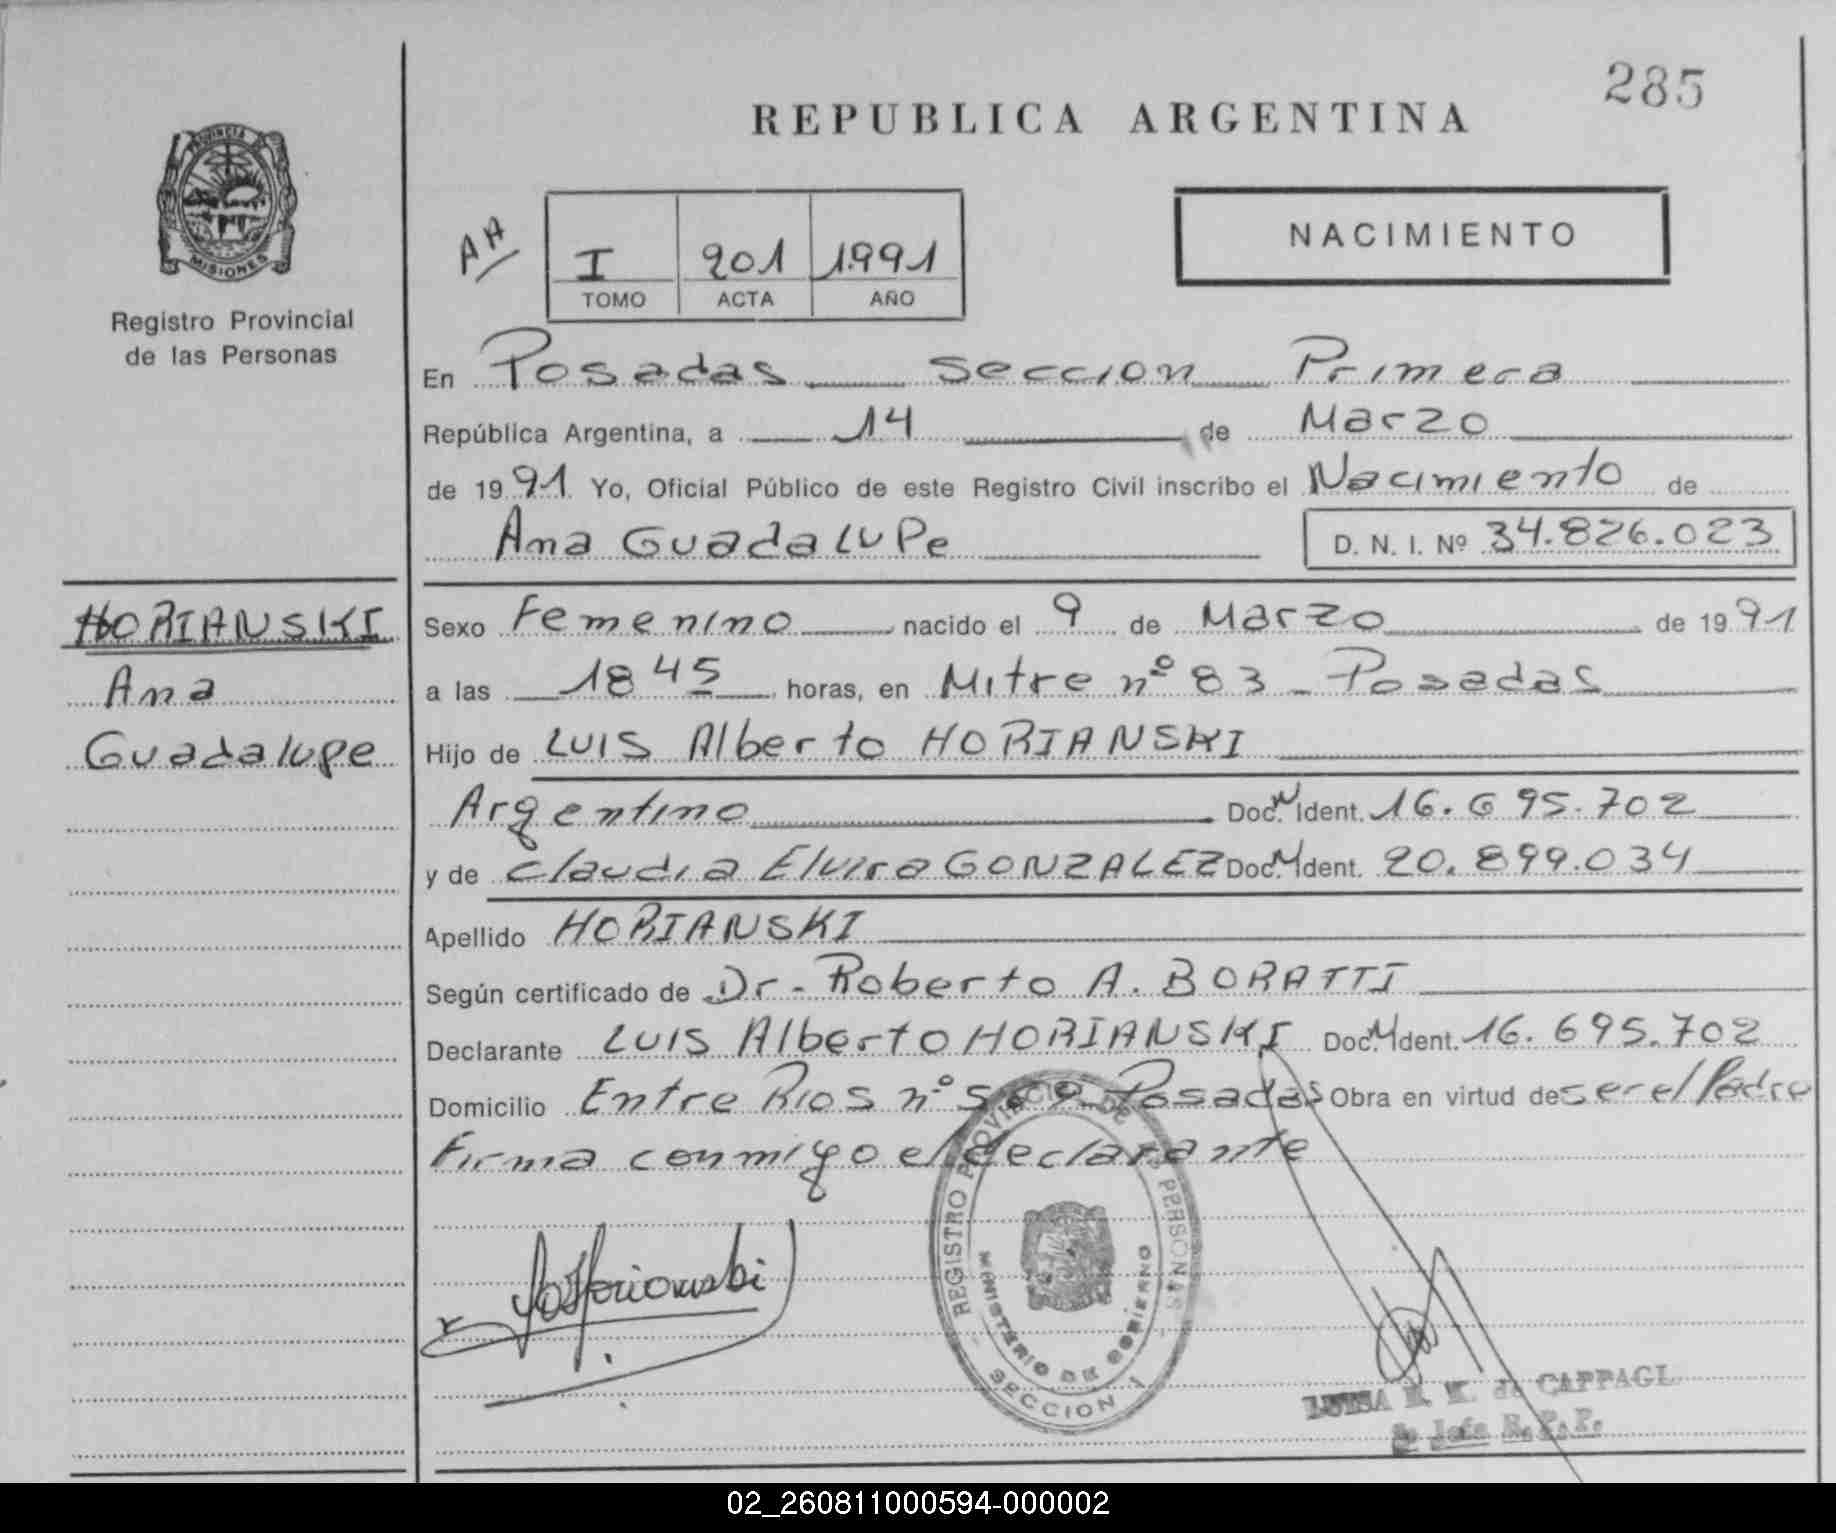 285
REPUBLICA ARGENTINA
PROVINCIA DE
MISIONES
Registro Provincial
de las Personas
AA
I 201 1991
TOMO ACTA AÑO
NACIMIENTO
En Posadas Seccion Primera
República Argentina, a 14 de Marzo
de 1991. Yo, Oficial Público de este Registro Civil inscribo el Nacimiento de
Ana Guadalupe D. N. I. Nº 34.826.023
HORIANSKI
Ana
Guadalupe
Sexo Femenino nacido el 9 de Marzo de 1991
a las 18 45 horas, en Mitre nº 83 - Posadas
Hijo de Luis Alberto HORIANSKI
Argentino Doc. N Ident. 16.695.702
y de Claudia Elvira GONZALEZ Doc. N Ident. 20.899.034
Apellido HORIANSKI
Según certificado de Dr. Roberto A. BORATTI
Declarante Luis Alberto HORIANSKI Doc. N Ident. 16.695.702
Domicilio Entre Rios nº Posadas Obra en virtud de ser el Padre
Firma conmigo el declarante
REGISTRO PROVINCIAL DE PERSONAS
MINISTERIO DE GOBIERNO
SECCION 1
LUISA de CAPPAGL
Jefa R. P. P.
02_260811000594-000002